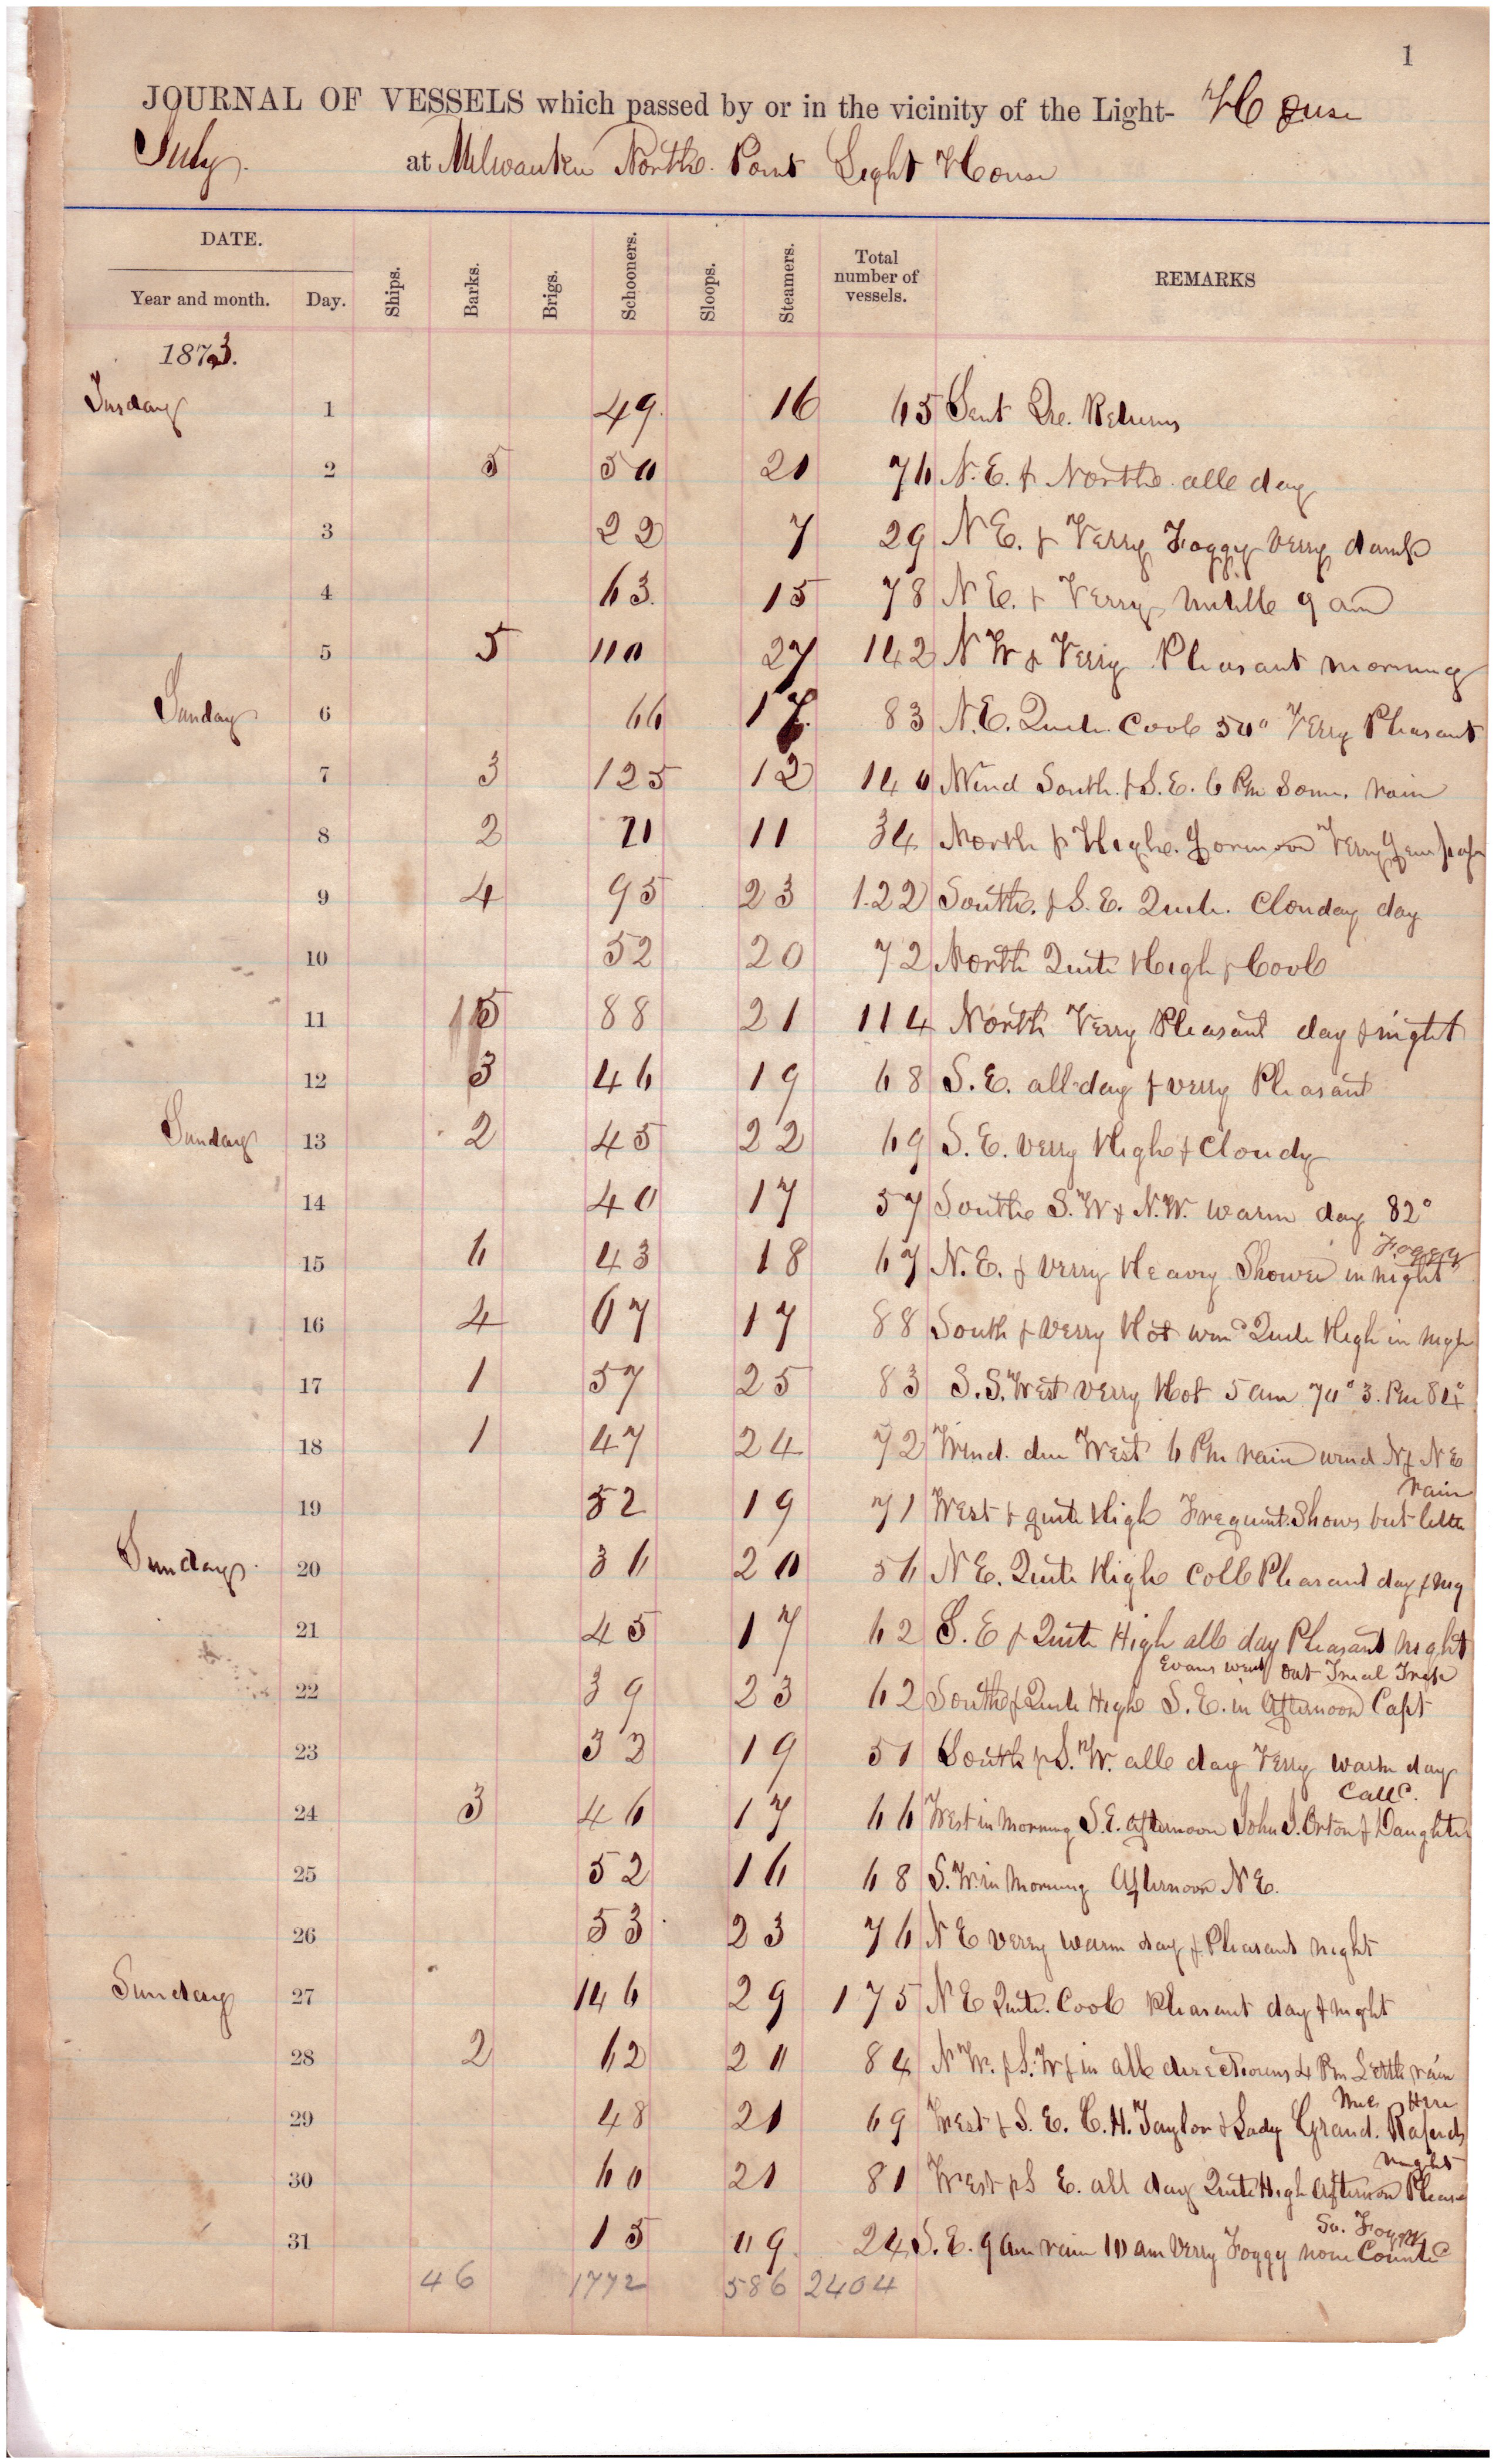 1
JOURNAL OF VESSELS which passed by or in the vicinity of the Light- House
July. at Milwaukee North. Point Light House
DATE.
Year and month. Day. Ships. Barks. Brigs. Schooners. Sloops. Steamers. Total number of vessels. REMARKS
1873.
Tusday 1 49. 16 65 Sent Returns
2 5 50 21 76 N.E. & North all day
3 22 7 29 N E. & Verry Foggy verry damp
4 63. 15 78 N E. & Verry 9 am
5 5 110 27 142 N W & Verry Pleasant morning
Sunday 6 66 17. 83 N.E. Quite Cool 50° Verry Pleasant
7 3 125 12 140 Wind South. & S.E. 6 Pm Some. rain
8 2 21 11 34 North & High. Verry
9 4 95 23 122 South. & S.E. Quite. Clouday day
10 52 20 72 North Quite High & Cool
11 5 88 21 114 North Verry Pleasant day & night
12 3 46 19 68 S.E. all day & verry Pleasant
Sunday 13 2 45 22 69 S.E. verry High & Cloudy
14 40 17 57 South S.W & N.W. warm day 82°
Foggy
15 6 43 18 67 N.E. & verry Heavy Shower in night
16 4 67 17 88 South & verry Hot wind Quite High in nigh
17 1 57 25 83 S.S. West verry Hot 5 am 70° 3. Pm 84°
18 1 47 24 72 Wind. due West 6 Pm rain wind N & N E
rain
19 52 19 71 West & quite High Frequint Shows but little
Sunday. 20 36 20 56 N E. Quite High Coll Pleasant day & nig
21 45 17 62 S. E & Quite High all day Pleasant night
Evans went out Trial Trip
22 39 23 62 South & Quite High S.E. in Afternoon Capt
23 32 19 51 South & S.W. all day Verry warm day
Calld.
24 3 46 17 66 West in Morning S.E. Afternoon John J. Orton & Daughter
25 52 16 68 S.W. in Morning Afternoon N E.
26 53 23 76 N E verry warm day & Pleasant night
Sunday 27 146 29 175 N E Quite. Cool Pleasant day & night
28 2 62 20 84 N W. & S.W & in all directions 4 Pm Little rain
Here
29 48 21 69 West & S. E. C.H. Taylor & Lady Grand. Rapids
night
30 60 21 81 West & S E. all day Quite High Afternoon Pleasa
So. Foggy
31 15 09 24 S.E. 9 am rain 10 am verry Foggy none Countd
46 1772 586 2404